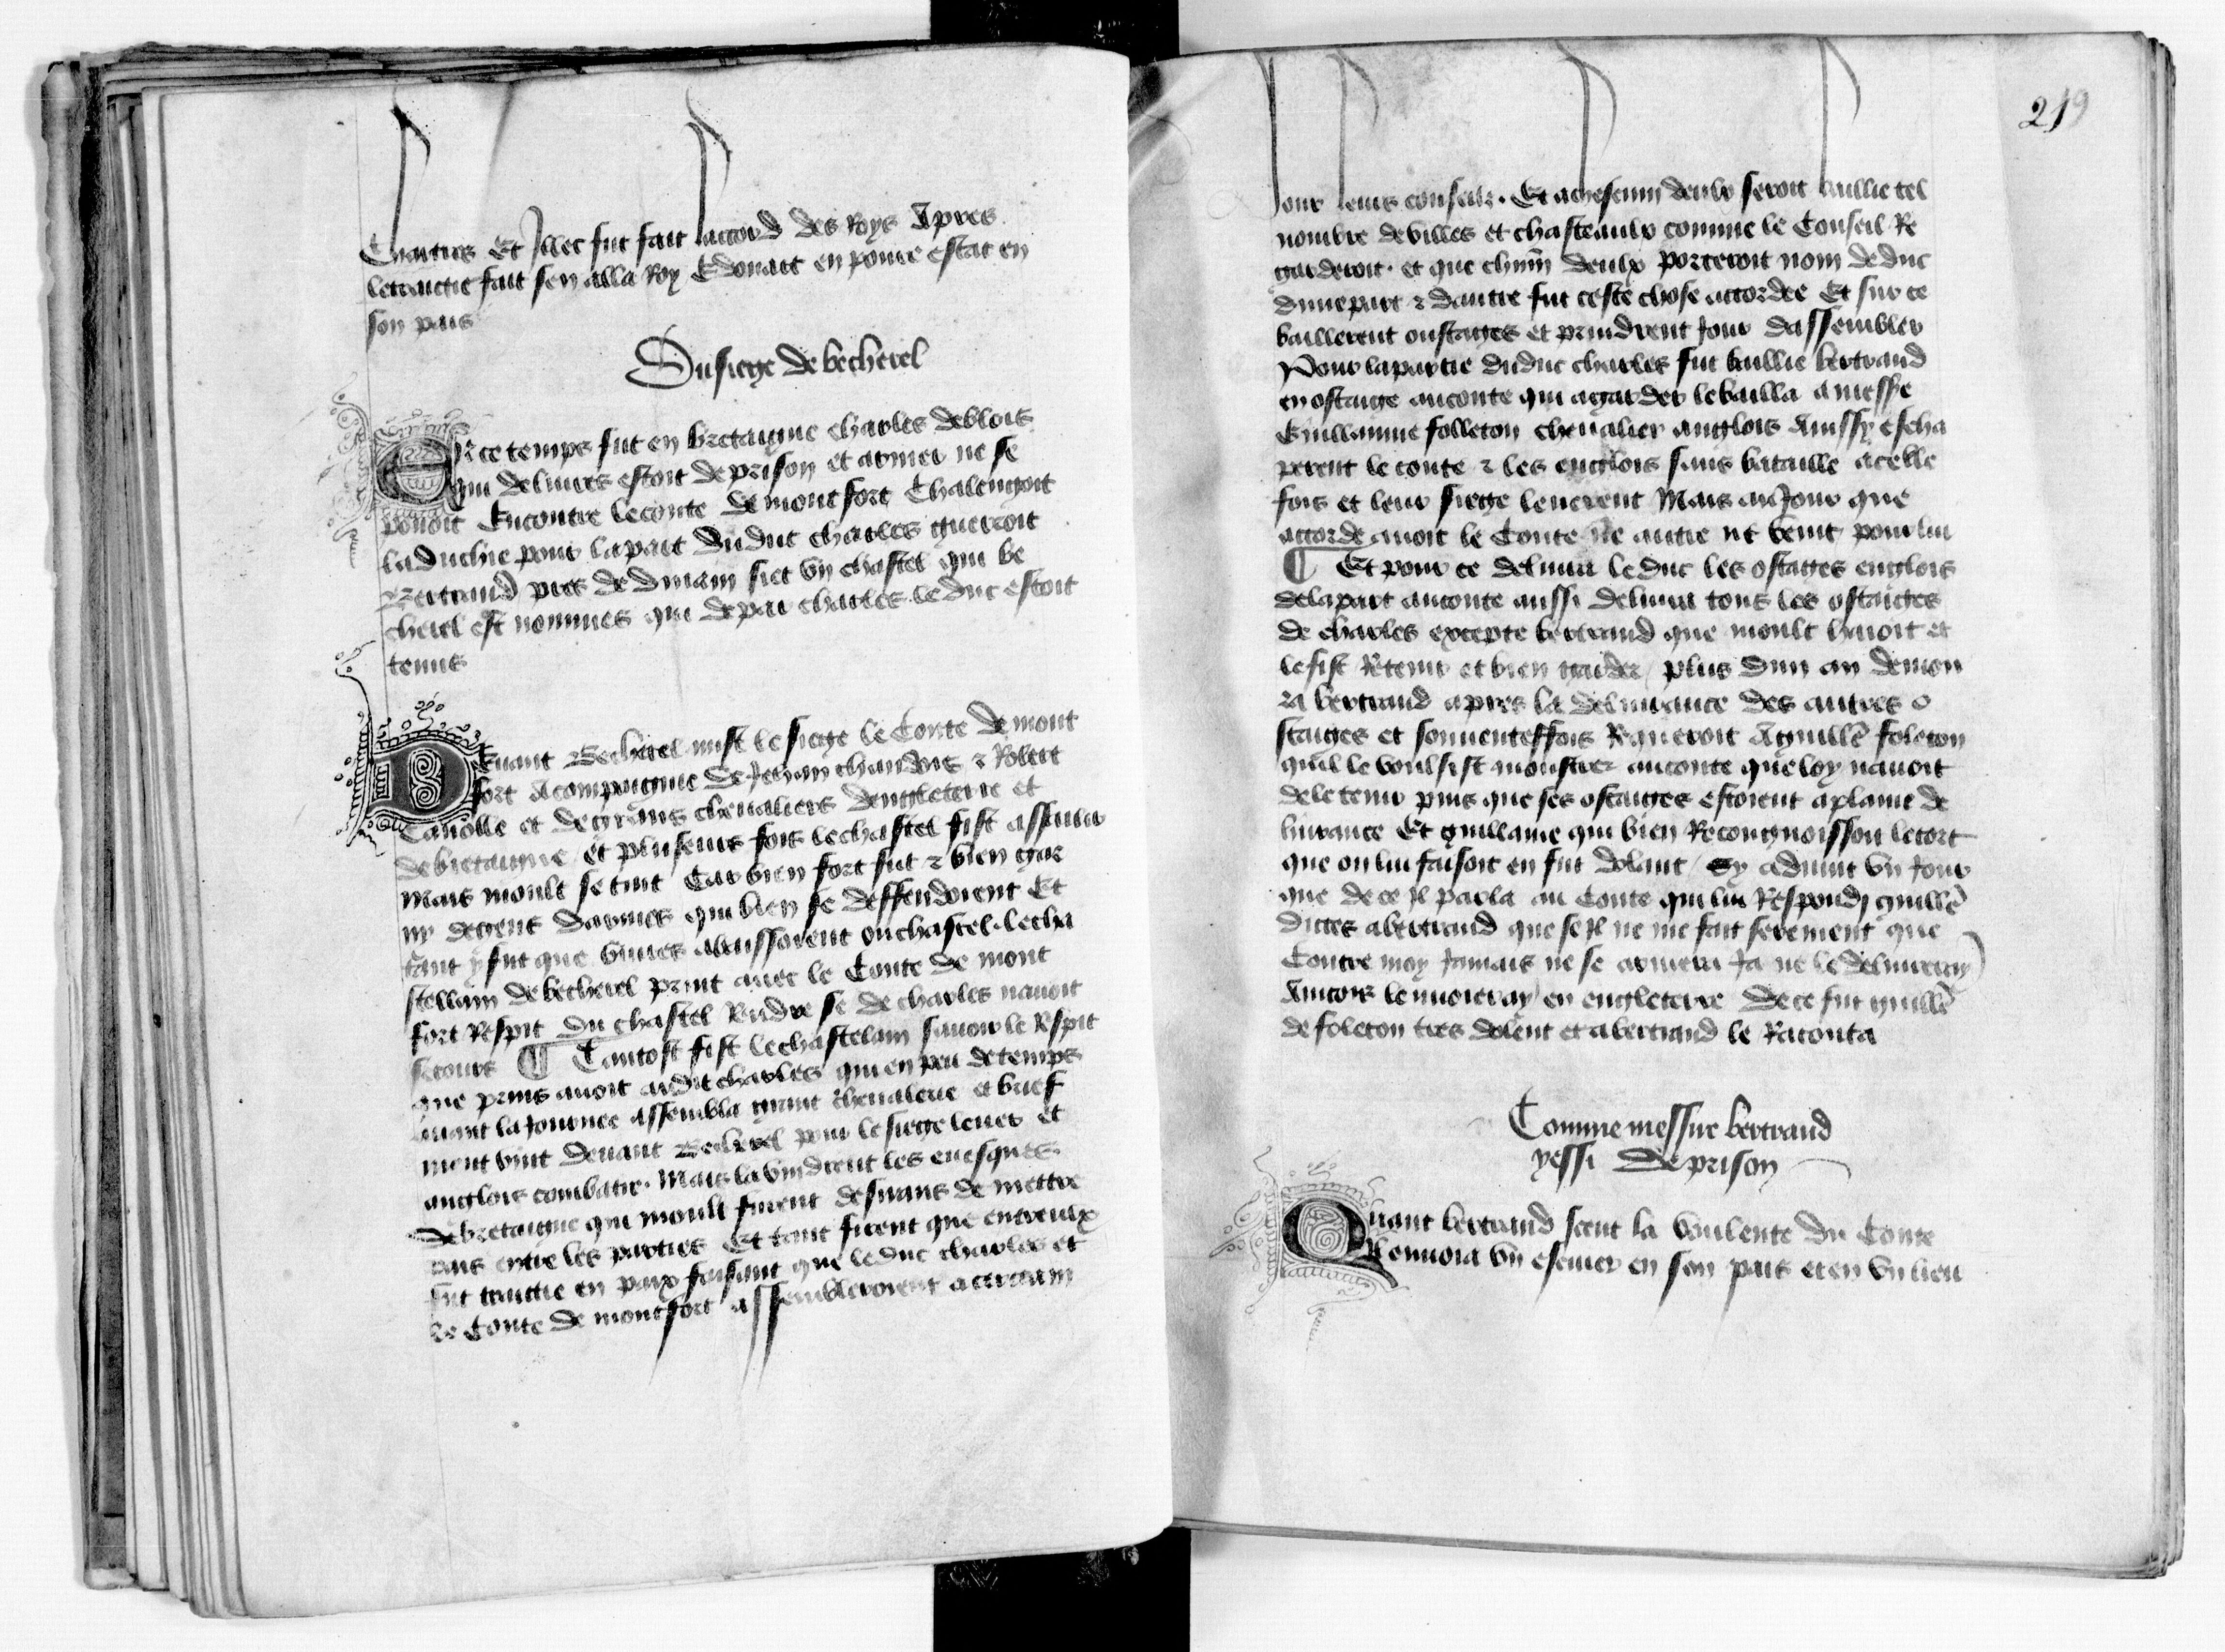 Chartres Et Illec fut fait laccord des Roys Apres
letraictie fait sen alla Roy Edouart en poure estat en
son pais
Du siege de becherel
En ce temps fut en bretaigne charles deblois
qui deliures estoit de prison et armer ne se
pouoit Encontre leconte de montfort Chalengoit
laduchie pour lapart duduc charles guerroit
Bertrand pres de dinain siet vn chastel qui be
cherel est nommes qui depar charles le duc estoit
tenus
Deuant Becherel mist le siege le Conte de mont
fort Acompaignie de Jehan chandois & Robert
Canolle et de grans cheualiers dengleterre et
debretaigne et pluseurs fois lechastel fist assaillir
Mais moult se tint Car bien fort fut & bien gar
ny degens darmes qui bien se deffendoient Et
tant y fut que viures abaissoient ouchastel. lecha
stellain de becherel print auec le Conte de mont
fort Respit du chastel Rendre se de charles nauoit
secours ¶ Tantost fist lechastelain sauoir le Respit
que prins auoit audit charles qui en peu detemps
auant la Journee assembla grant cheualerie et brief
ment vint deuant Becherel pour lesiege leuer et
anglois combatre. Mais la vindrent les euesques
debretaigne qui moult furent desirans de mettre
pais entre les parties Et tant firent que entreulx
fut traictie en paix faisant que leduc charles et
le Conte de montfort assembleroient acertain
Jour leurs conseilz. Et achescun deulx seroit baillie tel
nombre devilles et chasteaulx comme le Conseil Re
garderoit. et que chūn deulx porteroit nom de duc
dunepart & dautre fut ceste chose accordee Et sur ce
baillerent oustages et prindrent Jour dassembler
Pour lapartie duduc charles fut baillie bertrand
en ostaige auconte qui agarder lebailla a messe
Guillaume folleton cheualier anglois Aussy escha
perent le conte & les englois sans bataille acelle
fois et leur siege leuerent Mais auJour que
accorde auoit le Conte ne autre ne vint pour lui
¶ Et pour ce deliura le duc les ostages englois
delapart auconte aussi deliura tous les ostaiges
de charles excepte bertrand que moult hauoit et
le fist Retenir et bien garder / plus dun an demou
ra bertrand apres la deliurance des autres o
staiges et souuenteffois Requeroit Aguillē foleton
quil le voulsist monstrer auconte queloy nauoit
deletenir puis que ses ostaiges estoient aplaine de
liurance Et guillaume qui bien Recongnoisson letort
que on lui faisoit en fut dolant / Sy aduint vn Jour
que de ce Jl parla au Conte qui lui Respondj guillē
dictes abertrand que se Jl ne me fait serement que
Contre moy Jamais ne se armera Ja ne le deliureray
Aincois lenuoieray en engleterre De ce fut guillē
de foleton tres dolent et abertrand le Raconta
Comme messire bertrand
yssi de prison
Quant bertrand sceut la voulente du Conte
Jl enuoia vn escuier en son pais et en vn lieu
219